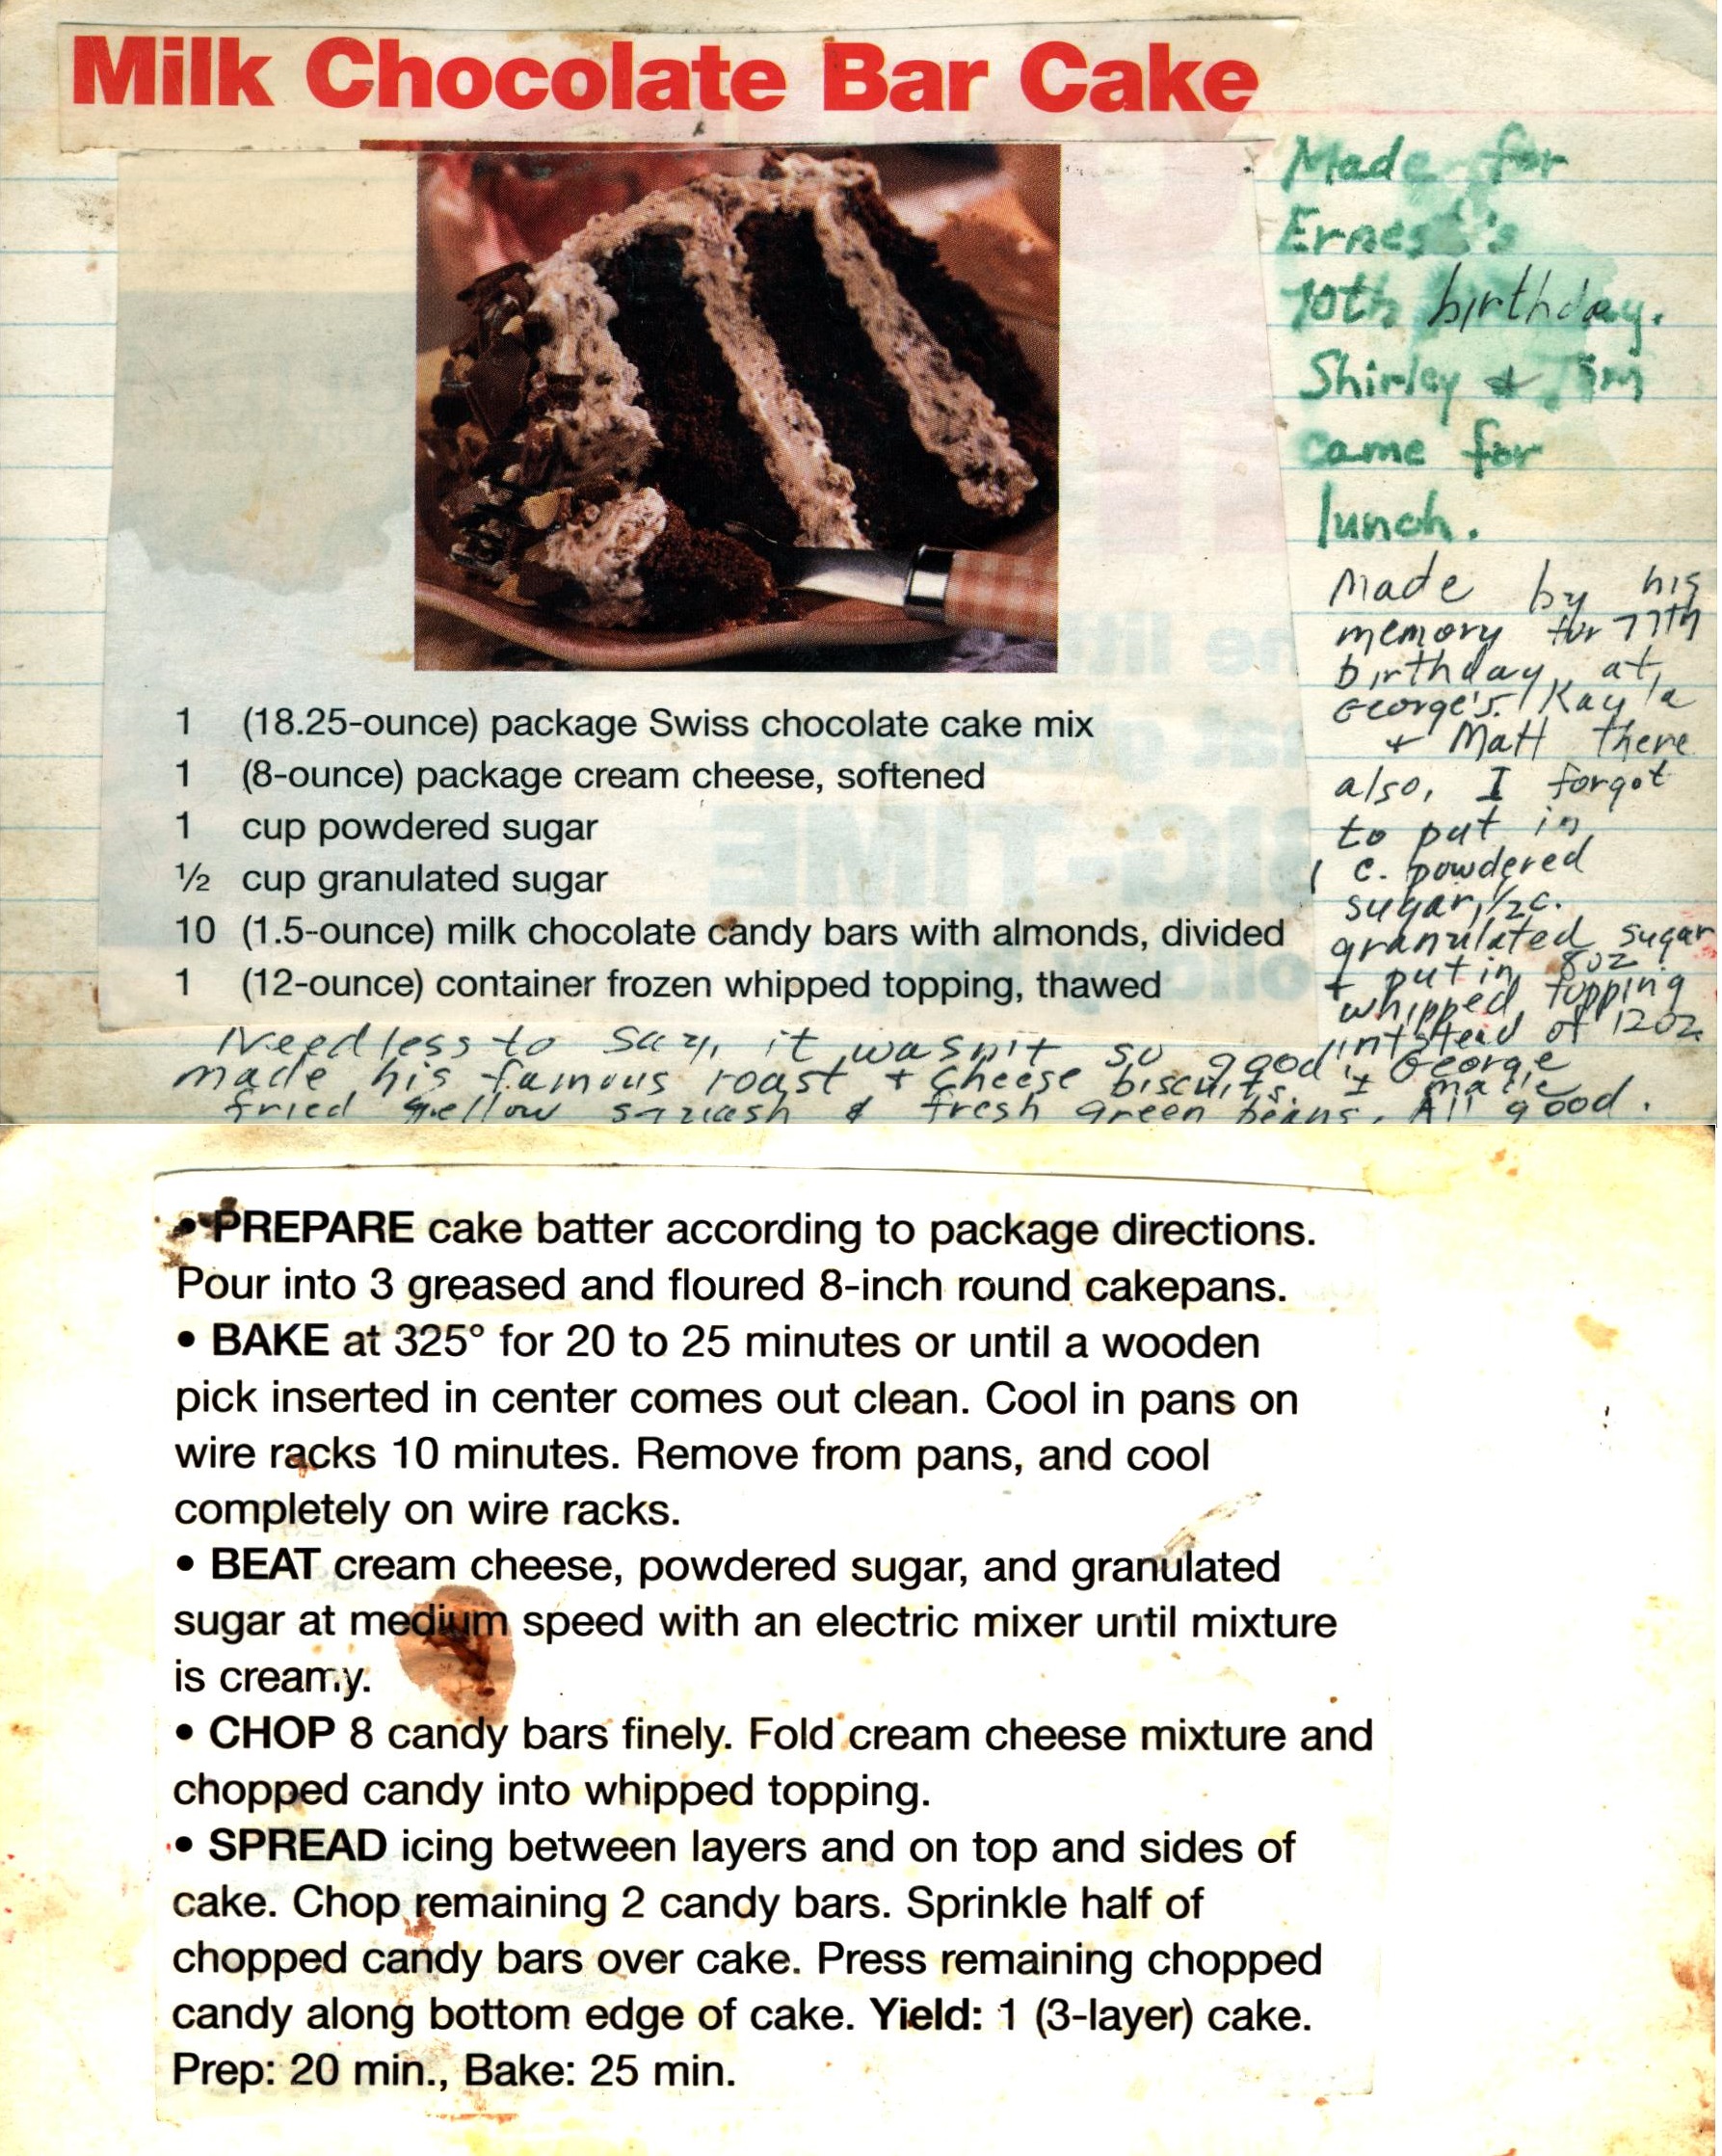 Milk Chocolate Bar Cake
Made for
Ernest's
70th birthday.
Shirley & Jim
came for
lunch.
Made by his
memory for 77th
birthday, at
George's. Kayla
+ Matt there
also, I forgot
to put in
1 c. powdered
sugar, 1/2 c.
granulated sugar
+ put in 8oz
whipped topping
intstead of 12oz
1 (18.25-ounce) package Swiss chocolate cake mix
1 (8-ounce) package cream cheese, softened
1 cup powdered sugar
½ cup granulated sugar
10 (1.5-ounce) milk chocolate candy bars with almonds, divided
1 (12-ounce) container frozen whipped topping, thawed
Needless to say, it wasn't so good! George
made his famous roast + cheese biscuits. I made
fried yellow squash & fresh green beans. All good.
• PREPARE cake batter according to package directions.
Pour into 3 greased and floured 8-inch round cakepans.
• BAKE at 325° for 20 to 25 minutes or until a wooden
pick inserted in center comes out clean. Cool in pans on
wire racks 10 minutes. Remove from pans, and cool
completely on wire racks.
• BEAT cream cheese, powdered sugar, and granulated
sugar at medium speed with an electric mixer until mixture
is creamy.
• CHOP 8 candy bars finely. Fold cream cheese mixture and
chopped candy into whipped topping.
• SPREAD icing between layers and on top and sides of
cake. Chop remaining 2 candy bars. Sprinkle half of
chopped candy bars over cake. Press remaining chopped
candy along bottom edge of cake. Yield: 1 (3-layer) cake.
Prep: 20 min., Bake: 25 min.